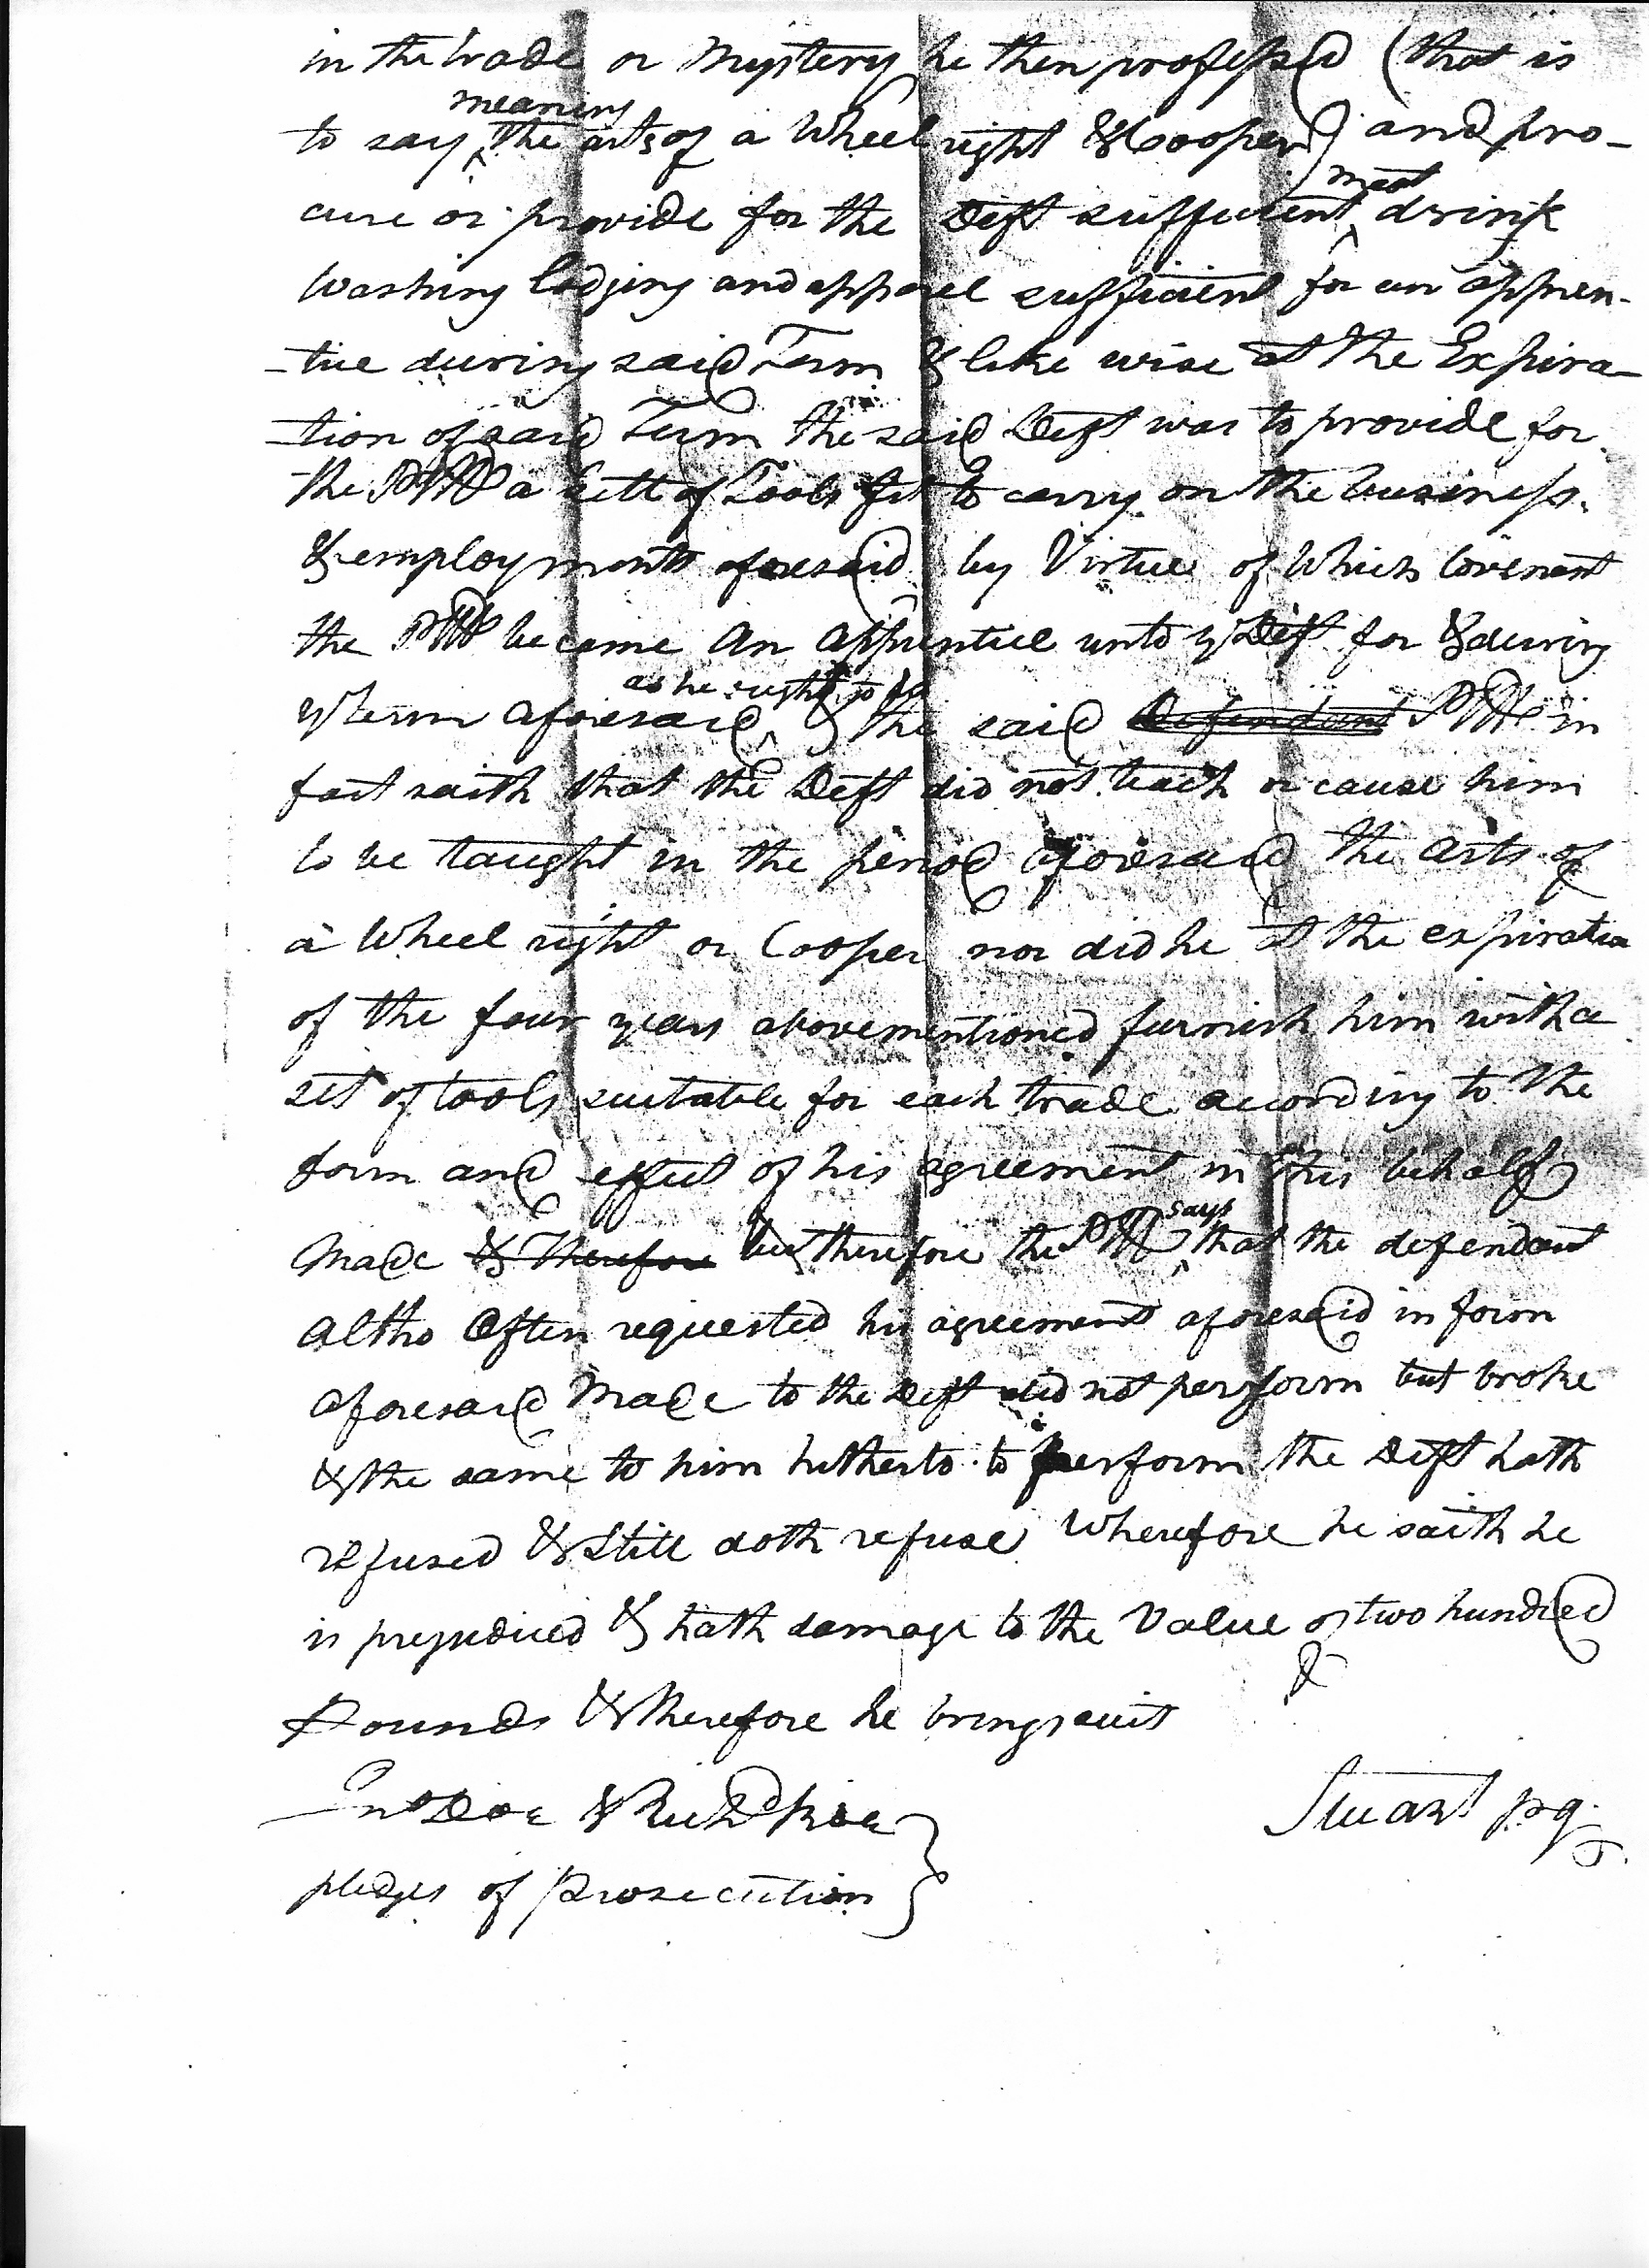 in the trade or Mystery he then professed (that is
meaning
to say the arts of a Wheel right & Cooper) and pro-
meat
cure or provide for the Deft sufficient drink
Washing lodging and apparel sufficient for an appren-
-tice during said Term & like wise at the Expira-
-tion of said Term the said Deft was to provide for
the Pltff a Sett of Tools fit to carry on the business
& employments aforesaid by Virtue of Which Covenant
the Pltff became An Apprentice unto ye Deft for & during
as he ought to do
ye term aforesaid & the said Defendant Pltff in
fact saith that the Deft did not teach or cause him
to be taught in the period aforesaid the arts of
a Wheel right or Cooper nor did he at the expiration
of the four years abovementioned furnish him with a
set of tools suitable for each trade according to the
form and effect of his agreement in this behalf
says
Made & Therefore but therefore the Pltff that the defendant
Altho Often requested his agreement aforesaid in form
aforesaid Made to the Deft did not perform but broke
& the same to him hitherto to perform the Deft hath
refused & Still doth refuse Wherefore he saith he
is prejudiced & hath damage to the Value of two hundred
Pounds & therefore he brings suit &
Jno Doe & Richd Roe
Stuart p q
pledges of Prosecution